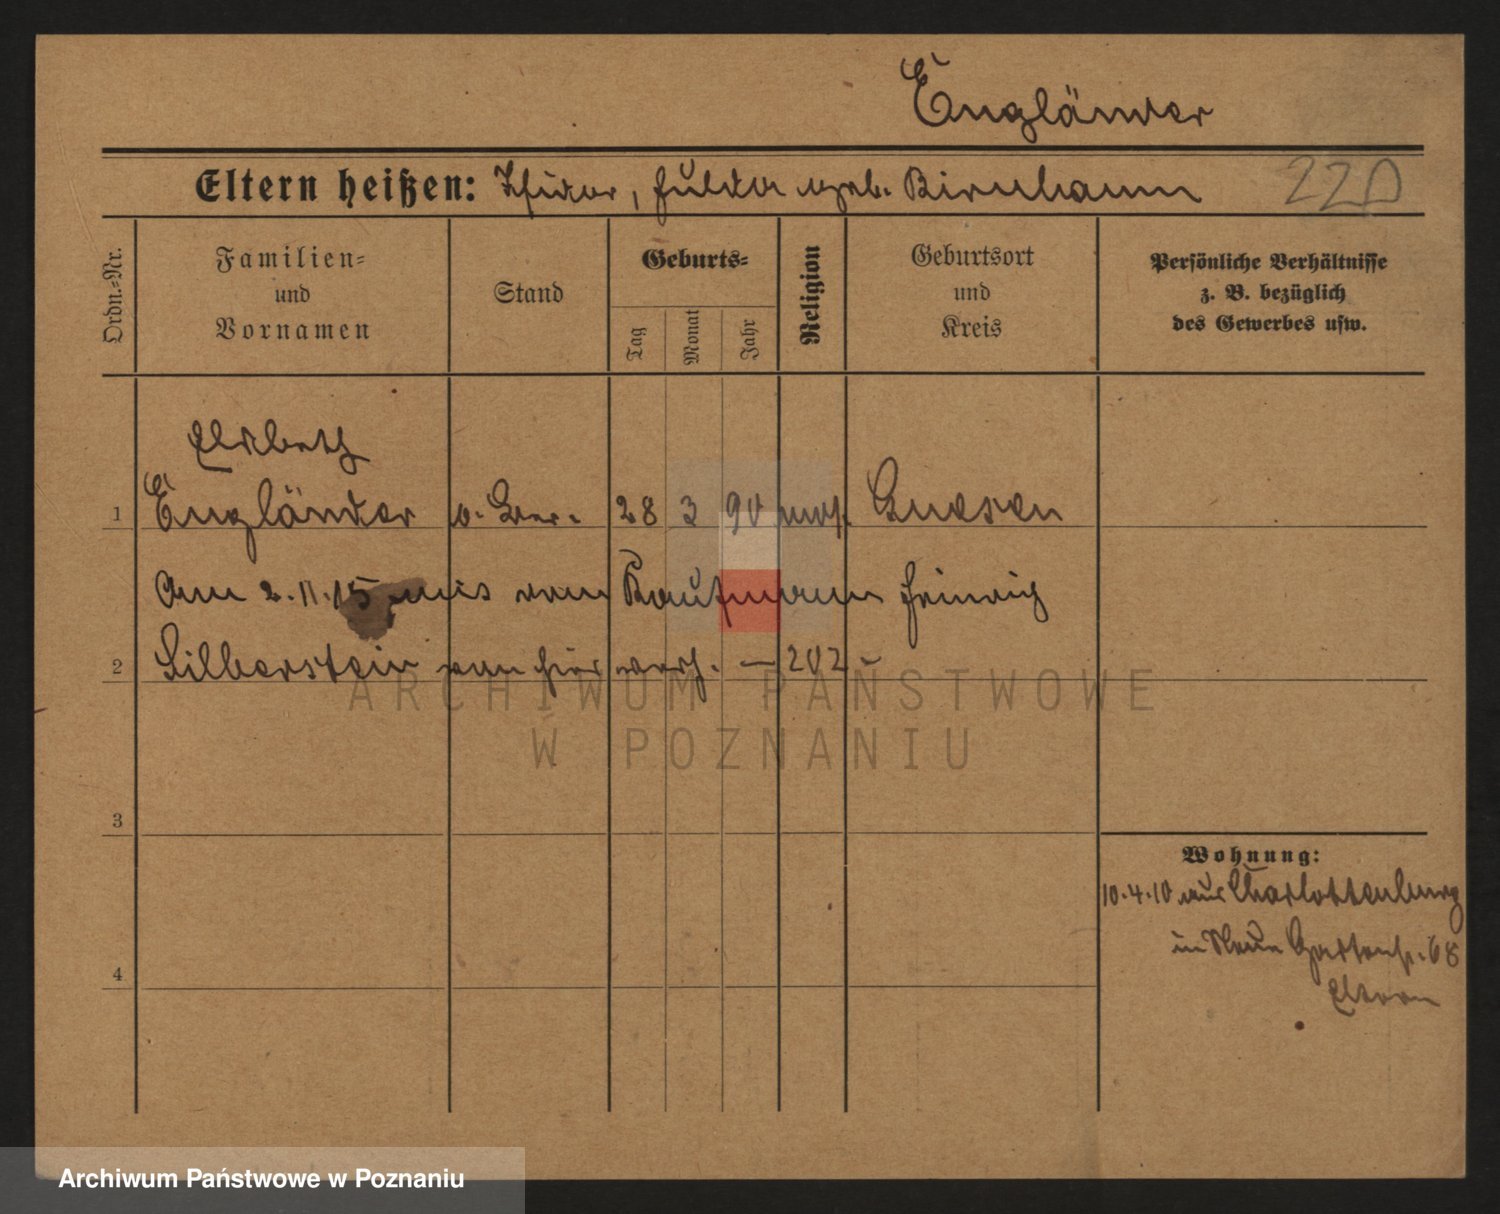 Engländer
Eltern heißen: Isidor, Hulda geb. Birnbaum
220
Ordn.=Nr.
Familien=
und
Vornamen
Stand
Geburts=
Tag
Monat
Jahr
Religion
Geburtsort
und
Kreis
Persönliche Verhältnisse
z. B. bezüglich
des Gewerbes usw.
Elsbeth
1 Engländer o. Gew. 28 3 90 mos. Gnesen
Am 2.11.15 mit dem Kaufmann Heinrich
2 Silberstein von hier verh. — 202 –
ARCHIWUM PAŃSTWOWE
W POZNANIU
3
Wohnung:
10.4.10 aus Charlottenburg
in Neue Gartenstr. 68
Eltern
4
Archiwum Państwowe w Poznaniu